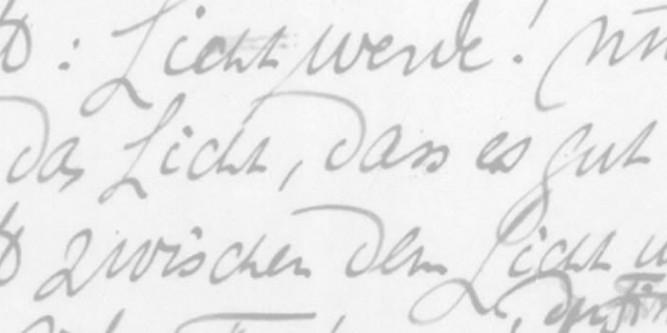 : Licht werde!
das Licht, dass es gut
zwischen dem Licht